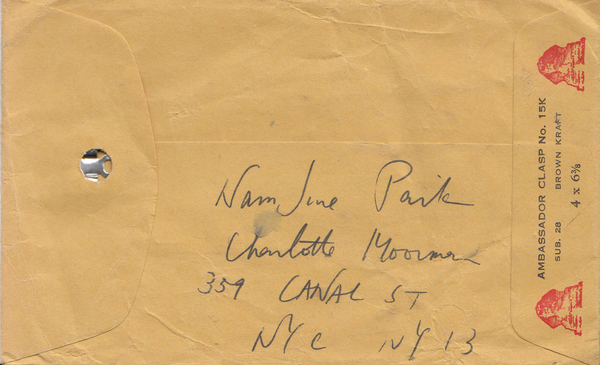 Nam June Paik
Charlotte Moorman
359 CANAL ST
NYC NY 13
AMBASSADOR CLASP No. 15K
SUB. 28 BROWN KRAFT
4 x 6⅜